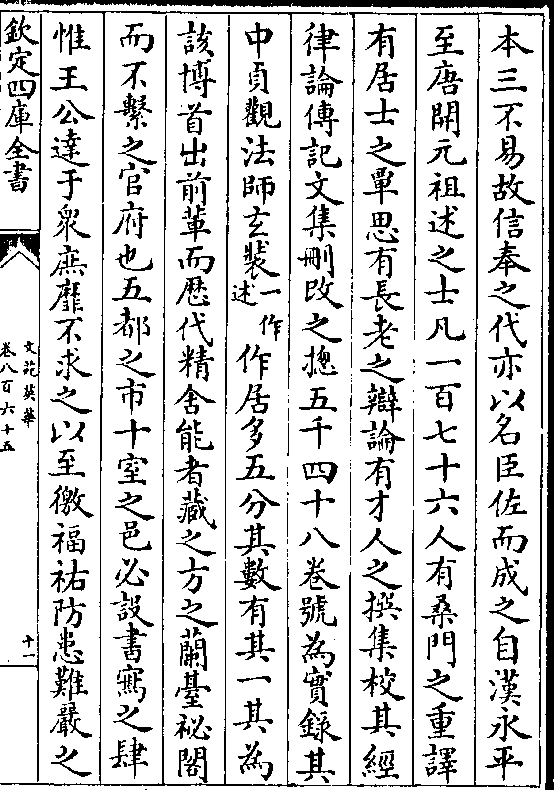 本三不易故信奉之代亦以名臣佐而成之自漢永平
至唐開元祖述之士凡一百七十六人有桑門之重譯
有居士之覃思有長老之辯論有才人之撰集校其經
律論傳記文集刪改之揔五千四十八卷號為實錄其
中貞觀法師玄裝一作述作居多五分其數有其一其為
該博首出前輩而歴代精舍能者藏之方之蘭臺祕閣
而不繫之官府也五都之市十室之邑必設書寫之肆
惟王公達于衆庶靡不求之以至徼福祐防患難嚴之
欽定四庫全書
文苑英華
卷八百六十五
十一